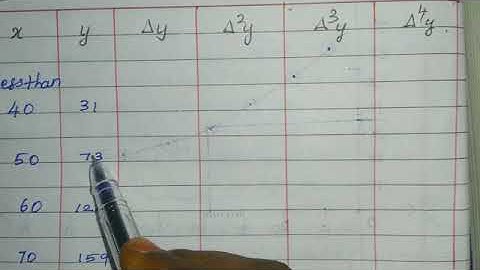 x y Δy Δ²y Δ³y Δ⁴y
essthan
40 31
50 73
60
70 159